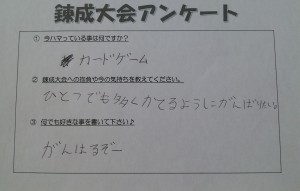 錬成大会アンケート
① 今ハマっている事は何ですか?
カードゲーム
② 錬成大会への抱負や今の気持ちを教えてください。
ひとつでも多くかてるようにがんばりたい
③ 何でも好きな事を書いて下さい♪
がんばるぞー